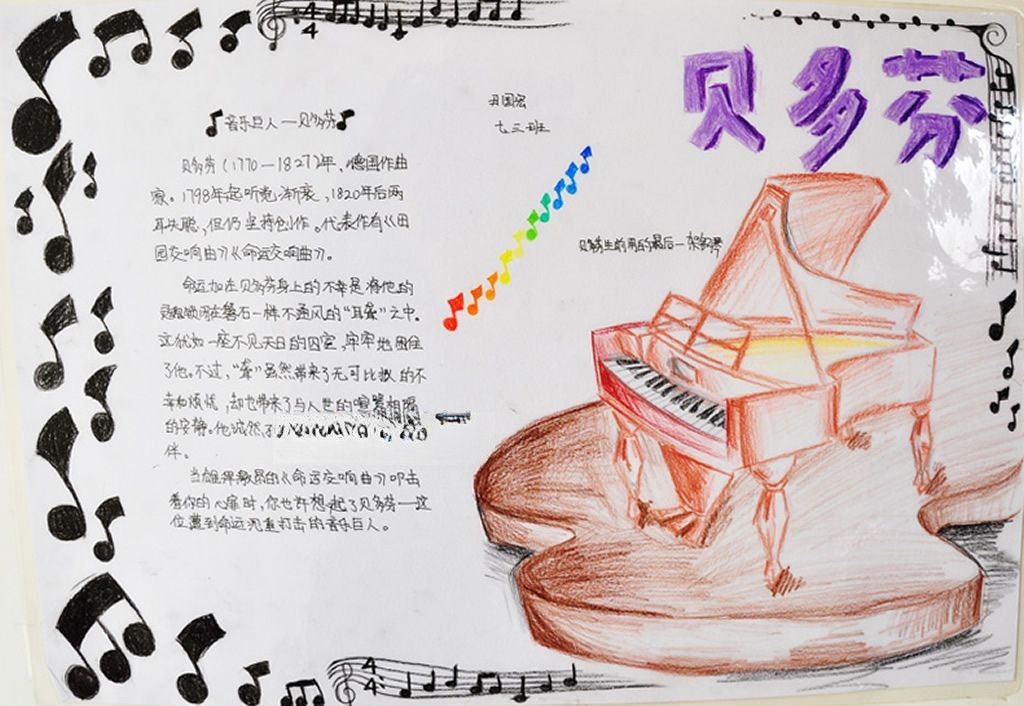 贝多芬
丑国宏
七三班
音乐巨人—贝多芬
贝多芬(1770—1827)年,德国作曲
家。1798年起听觉渐衰,1820年后两
耳失聪,但仍坚持创作。代表作有《田
园交响曲》《命运交响曲》。
命运加在贝多芬身上的不幸是将他的
灵魂锁闭在磐石一样不通风的“耳聋”之中。
这犹如一座不见天日的囚室,牢牢地困住
了他。不过,“聋”虽然带来了无可比拟的不
幸和烦忧,却也带来了与人世的喧嚣相隔
的安静。他诚然
伴。
当雄浑激昂的《命运交响曲》叩击
着你的心扉时,你也许想起了贝多芬—这
位遭到命运沉重打击的音乐巨人。
贝多芬生前用的最后一架钢琴
4
4
4
4